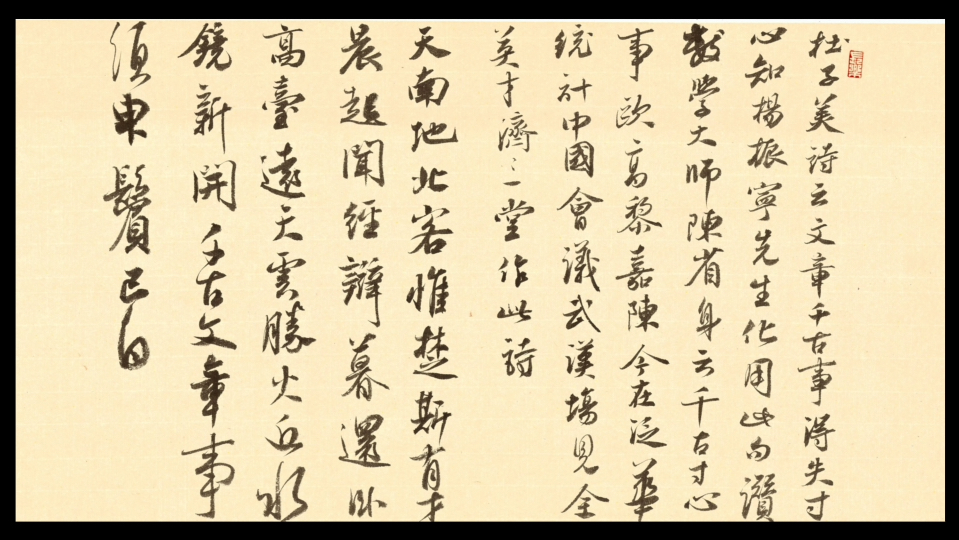 杜子美詩云文章千古事得失寸
心知楊振寧先生化用此句讚
數學大師陳省身云千古寸心
事歐高黎嘉陳今在泛華
統計中國會議武漢場見全
英才濟濟一堂作此詩
天南地北客惟楚斯有才
晨起聞經辯暮還臥
高臺遠天雲勝火近水
鏡新開千古文章事
須申鬢已白